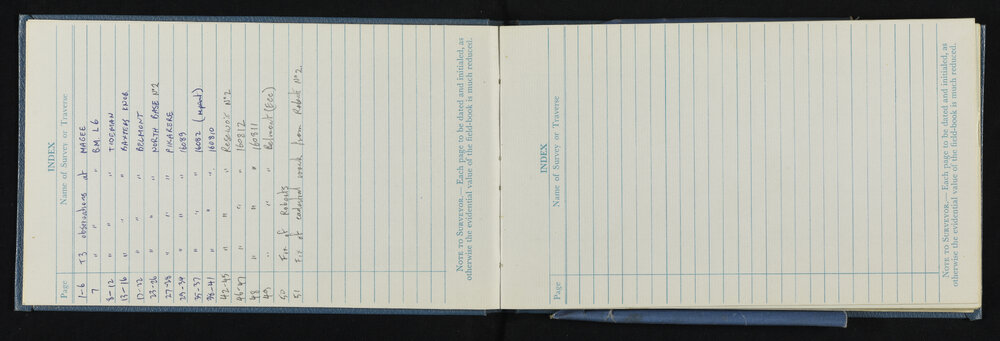 INDEX
Page Name of Survey or Traverse
1-6 T3 observations at MAGEE
7 " " " B.M. L6
8-12 " " " TIDEMAN
13-16 " " " BAXTERS KNOB
17-22 " " " BELMONT
23-26 " " " NORTH BASE No 2
27-28 " " " PUKARERE
29-34 " " " 16089
35-37 " " " 16082 (repeat)
38-41 " " " 160810
42-45 " " " RESERVOIR No 2
46-47 " " " 160812
48 " " " 160811
49 " " " Belmont (ECC)
50 Fix of Roberts
51 Fix of cadastral mark from Roberts No 2.
NOTE TO SURVEYOR.— Each page to be dated and initialed, as
otherwise the evidential value of the field-book is much reduced.
INDEX
Page Name of Survey or Traverse
NOTE TO SURVEYOR.— Each page to be dated and initialed, as
otherwise the evidential value of the field-book is much reduced.